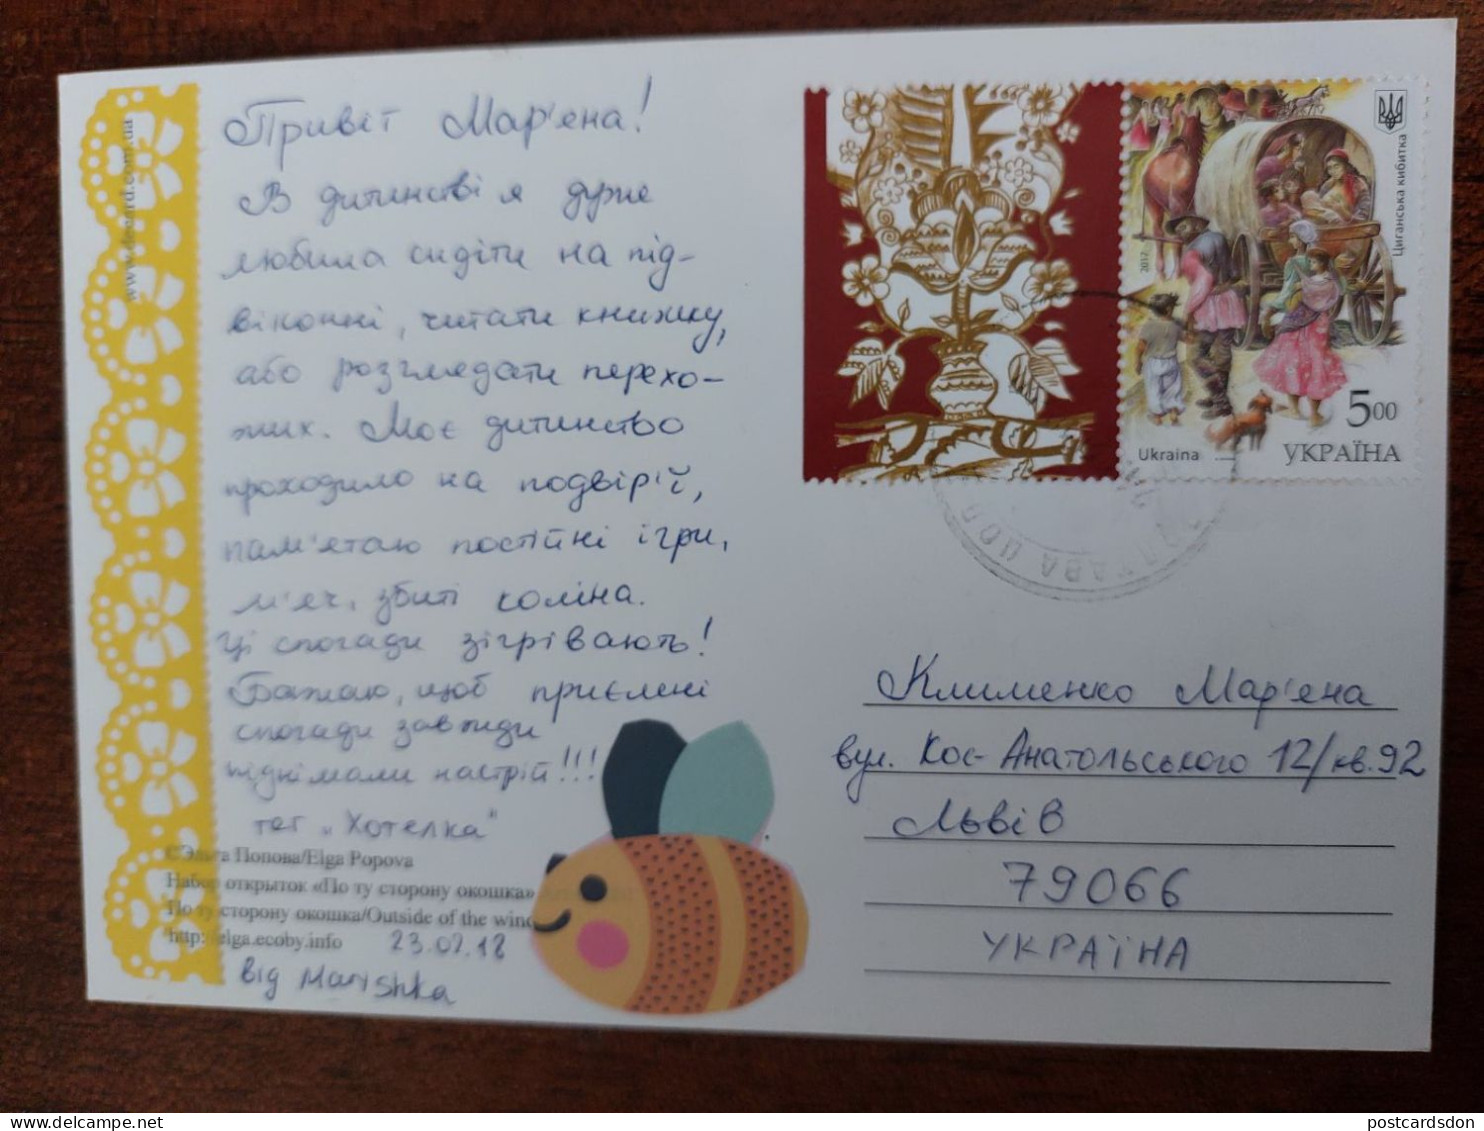 Привіт Мар'яна!
В дитинстві я дуже
любила сидіти на під-
віконні, читати книжку,
або розглядати перехо-
жих. Моє дитинство
проходило на подвір'ї,
пам'ятаю постійні ігри,
м'яч, збиті коліна.
Ці спогади зігрівають!
Бажаю, щоб приємні
спогади завжди
піднімали настрій!!!
тег "Хотелка"
©Эльга Попова/Elga Popova
Набор открыток «По ту сторону окошка»
По ту сторону окошка/Outside of the wind
http: elga.ecoby.info
23.02.18
від Marishka
Циганська кибитка
2017
5 00
Ukraina
УКРАЇНА
ПОЛТАВА ЦОП
Клименко Мар'яна
вул. Кос-Анатольського 12/кв.92
Львів
79066
УКРАЇНА
postcardsdon